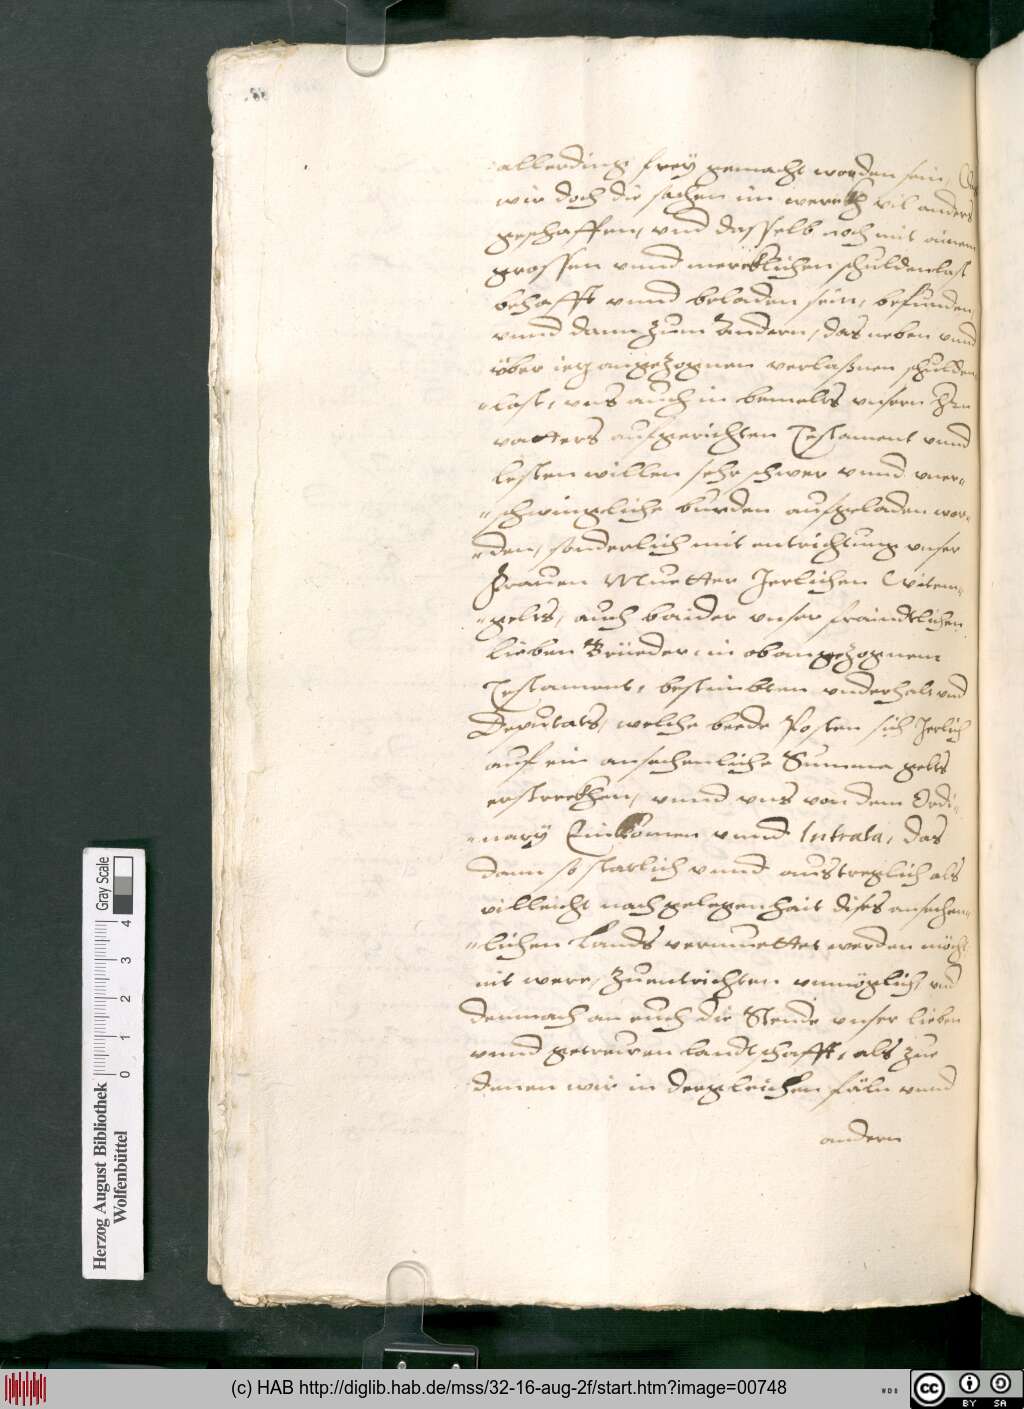 allerding frey gemacht worden sein, Ob
wir doch die sachen im werckh vil anders
geschaffen, vnd dasselb noch mit ainem
grossen vnnd mercklichen schuldenlast
behafft vnnd beladen sein, befunden,
vnnd dann zum andern, das neben vnnd
vber ietz angezognen verlaßnen schulden
last, vns auch in bemelts vnsern Hrn
vatters aufgerichten Testament vnnd
lesten willen sehr schwer vnnd vner-
schwingliche burden aufgeladen wor-
den, sonderlich mit entrichtung vnser
Frauen Muetter Jerlichen Witem-
gelts, auch baider vnser fraindtlichen
lieben Brüeder, in obangezognem
Testament, bestimbten vnderhalt vnd
Deputats, welche beede Posten sich Jerlich
auf ein ansehenliche Summa gelts
erstreckhen, vnnd vns von dem Ordi-
nary Einkomen vnnd Intrata, das
dann so starlich vnnd austreglich als
villeicht nach gelegenhait dises ansehen-
lichen Lands vermuettet werden möcht
nit were, zuentrichten vnmöglich, vnd
demnach an euch die Stende vnser lieben
vnnd getreuen landtschafft, als zue
denen wir in dergleichen fäln vnnd
andern
Herzog August Bibliothek
Wolfenbüttel
0 1 2 3 4
Gray Scale
(c) HAB http://diglib.hab.de/mss/32-16-aug-2f/start.htm?image=00748
WDB
CC BY SA